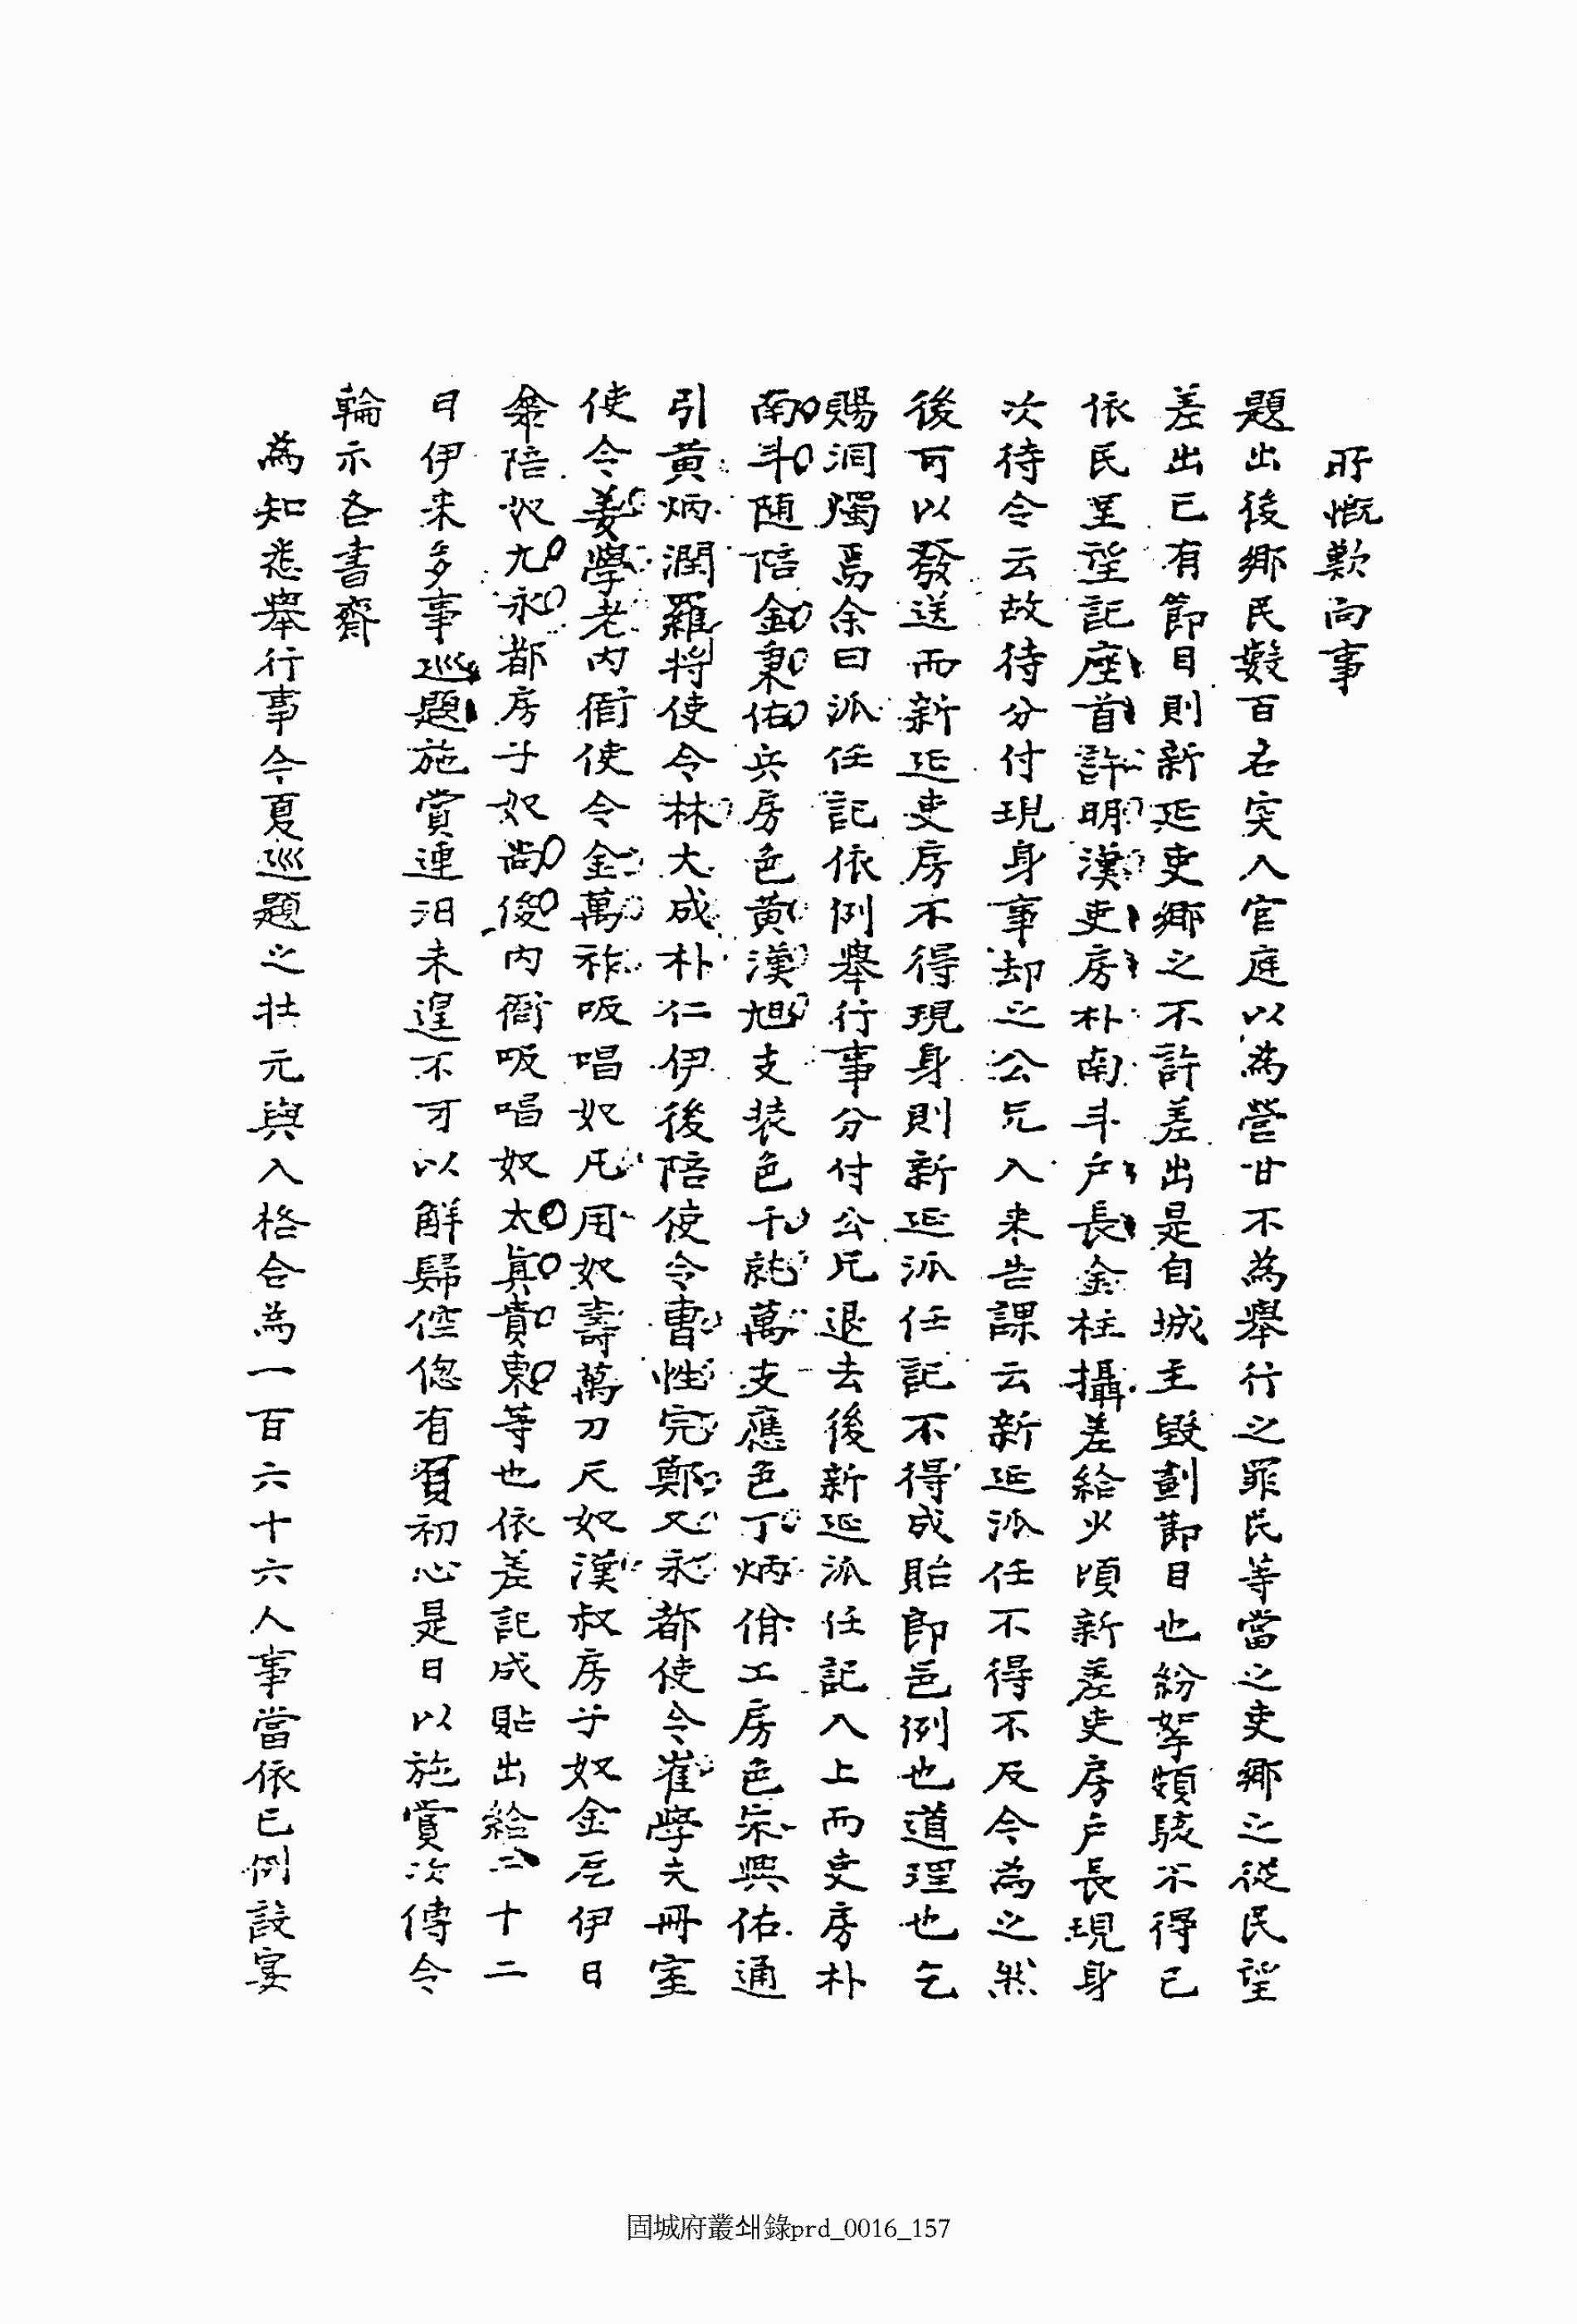 所慨歎向事
題出後鄕民數百名突入官庭以為營甘不為擧行之罪民等當之吏鄕之從民望
差出已有節目則新延吏鄕之不許差出是自城主毀劃節目也紛挐頗駭不得已
依民呈望記座首許明漢吏房朴南斗戶長金柱攝差給少頃新差吏房戶長現身
次待令云故待分付現身事却之公兄入来告課云新延派任不得不及今為之然
後可以發送而新延吏房不得現身則新延派任記不得成貼卽邑例也道理也乞
賜洞燭焉余曰派任記依例擧行事分付公兄退去後新延派任記入上而吏房朴
南斗随陪金秉佑兵房色黃漢旭支裝色千就萬支應色丁炳偹工房色宋興佑通
引黃炳潤羅將使令林大成朴仁伊後陪使令曺性完鄭又永都使令崔學夫冊室
使令姜學老內衙使令金萬祚吸唱奴凡用奴壽萬刀尺奴漢叔房子奴金乭伊日
傘陪奴九永都房子奴尙俊內衙吸唱奴太眞貴東等也依差記成貼出給二十二
日伊来多事巡題施賞連汨未遑不可以觧歸倥偬有負初心是日以施賞次傳令
輪示各書齋
為知悉擧行事今夏巡題之壯元與入格合為一百六十六人事當依已例設宴
固城府叢쇄錄prd_0016_157